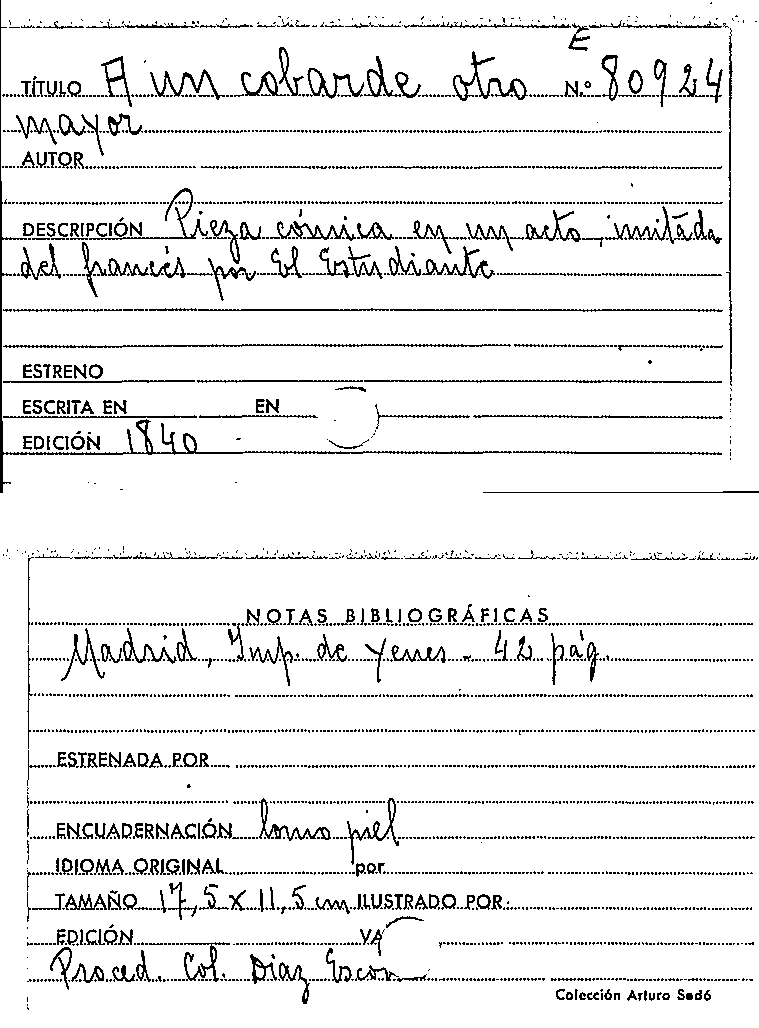 E
TÍTULO A un cobarde otro N.º 80924
mayor
AUTOR
DESCRIPCIÓN Pieza cómica en un acto, imitada
del francés por El Estudiante
ESTRENO
ESCRITA EN EN
EDICIÓN 1840
NOTAS BIBLIOGRÁFICAS
Madrid, Imp. de Yenes - 42 pág.
ESTRENADA POR
ENCUADERNACIÓN lomo piel
IDIOMA ORIGINAL por
TAMAÑO 17,5 x 11,5 cm ILUSTRADO POR:
EDICIÓN VA
Proced. Col. Diaz Escon
Colección Arturo Sedó